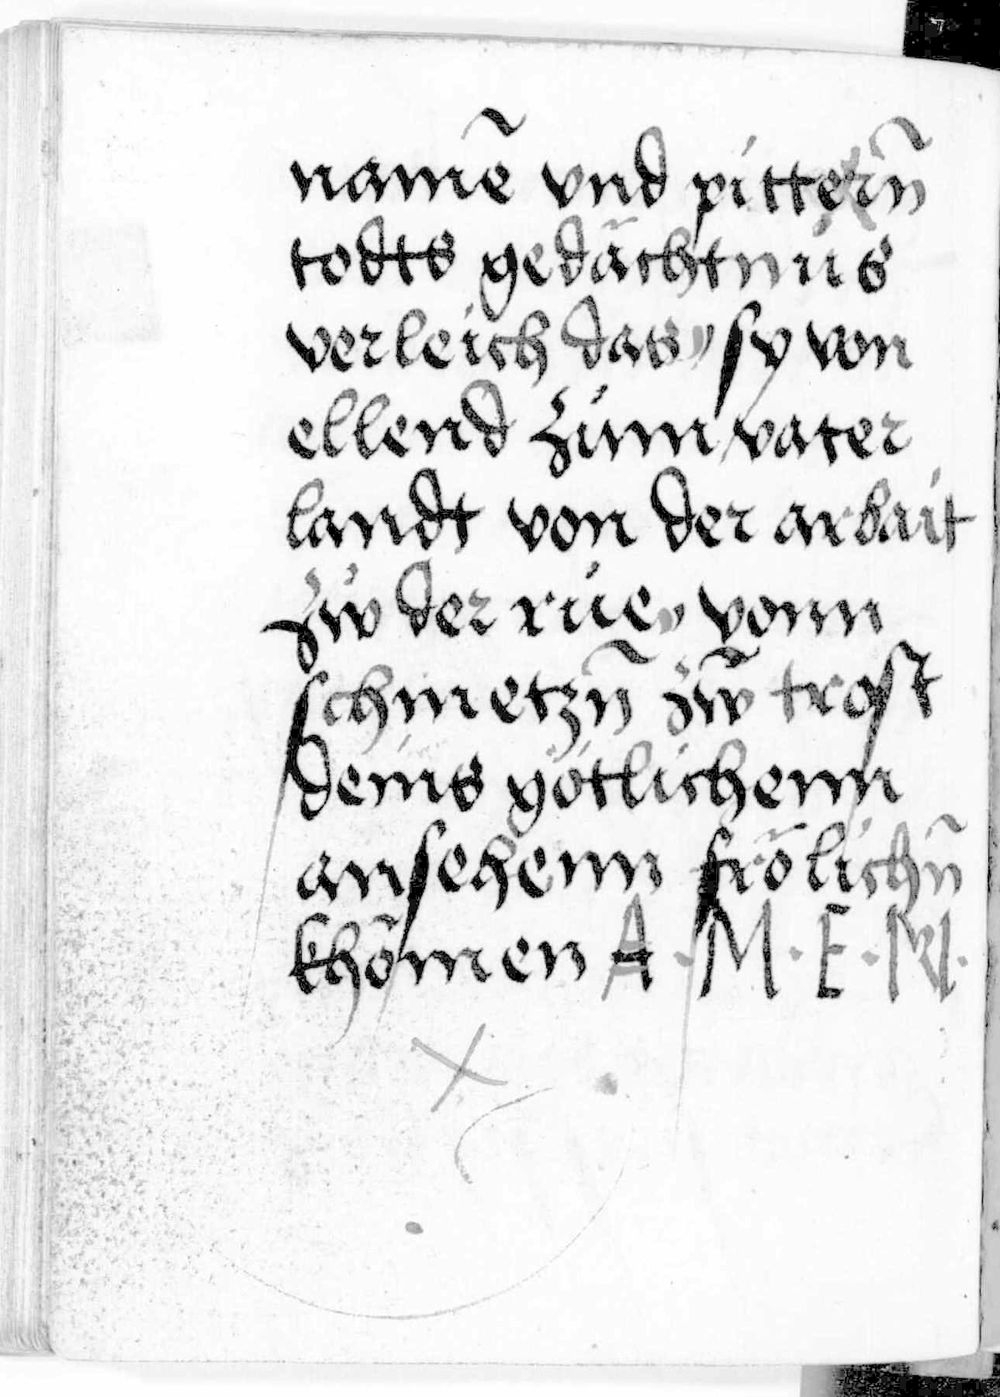 namē vnd pittern̄
todts gedächtnüs
verleich das, sy von
ellend zům vater
landt von der arbait
zẘ der růe, vonn
schmetzn̄ zw̄ trost
deins götlichenn
ansehenn frölichn̄
khōmen A · M · E · N ·